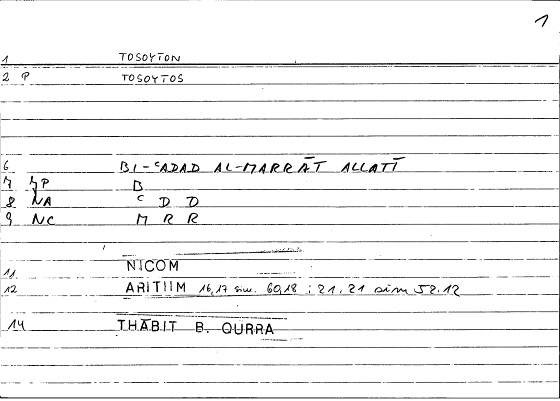 1
1 TOSOYTON
2 P TOSOYTOS
6 BI-ʿADAD AL-MARRĀT ALLATĪ
7 MP B
8 NA ʿ D D
9 NC M R R
11 NICOM
12 ARITIIM 16,17 sim. 60,18 ; 21,21 sim 52.12
14 THĀBIT B. QURRA